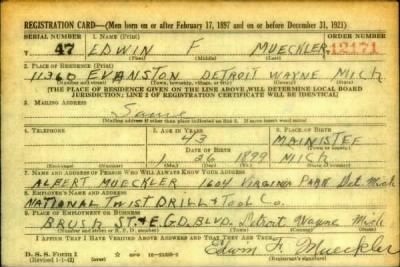 REGISTRATION CARD—(Men born on or after February 17, 1897 and on or before December 31, 1921)
SERIAL NUMBER 1. NAME (Print) ORDER NUMBER
T 47 EDWIN F MUECKLER 12171
(First) (Middle) (Last)
2. PLACE OF RESIDENCE (Print)
11360 EVANSTON DETROIT WAYNE MICH
(Number and street) (Town, township, village, or city) (County) (State)
[THE PLACE OF RESIDENCE GIVEN ON THE LINE ABOVE WILL DETERMINE LOCAL BOARD
JURISDICTION; LINE 2 OF REGISTRATION CERTIFICATE WILL BE IDENTICAL]
3. MAILING ADDRESS
Same
[Mailing address if other than place indicated on line 2. If same insert word same]
4. TELEPHONE 5. AGE IN YEARS 6. PLACE OF BIRTH
43 MANISTEE
DATE OF BIRTH (Town or county)
1 26 1899 MICH
(Exchange) (Number) (Mo.) (Day) (Yr.) (State or country)
7. NAME AND ADDRESS OF PERSON WHO WILL ALWAYS KNOW YOUR ADDRESS
ALBERT MUECKLER 1604 VIRGINIA PARK Det. Mich
8. EMPLOYER'S NAME AND ADDRESS
NATIONAL TWIST DRILL & TOOL CO.
9. PLACE OF EMPLOYMENT OR BUSINESS
BRUSH ST. & E. G.D. BLVD. Detroit Wayne Mich
(Number and street or R. F. D. number) (Town) (County) (State)
I AFFIRM THAT I HAVE VERIFIED ABOVE ANSWERS AND THAT THEY ARE TRUE.
D. S. S. Form 1
(Revised 1-1-42) (over) Edwin F. Mueckler
(Registrant's signature)